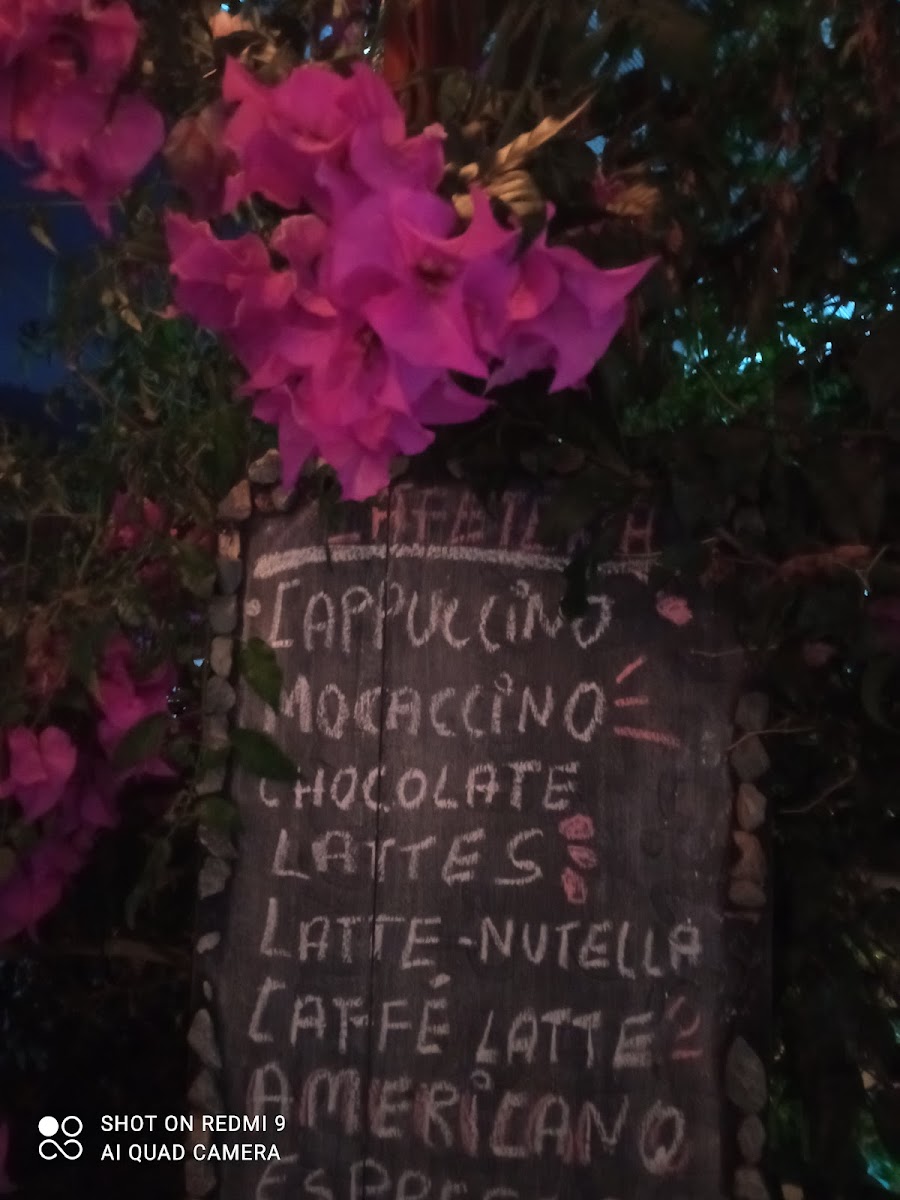 CAFETERIA
CAPPUCCINO
MOCACCINO
CHOCOLATE
LATTES
LATTE-NUTELLA
CAFFÉ LATTE
AMERICANO
SHOT ON REDMI 9
AI QUAD CAMERA